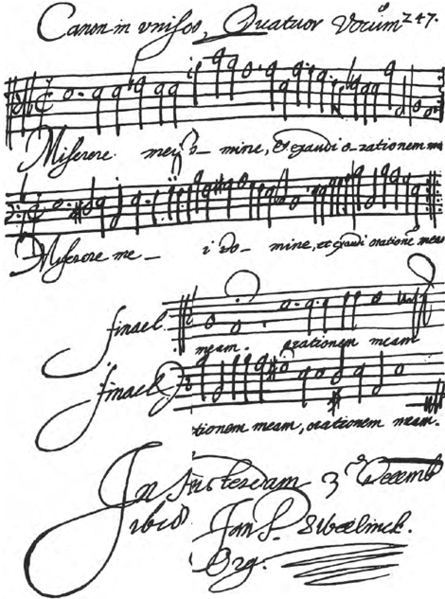 Canon in unisos, Quatuor Vocum 247.
Miserere mei domine, et exaudi orationem m
Miserere me - i do - mine, et exaudi orationem meam
finael
meam. orationem meam
finael
tionem meam, orationem meam.
In Amsterdam 3 Decemb
Jan P. Swelinck.
Org.